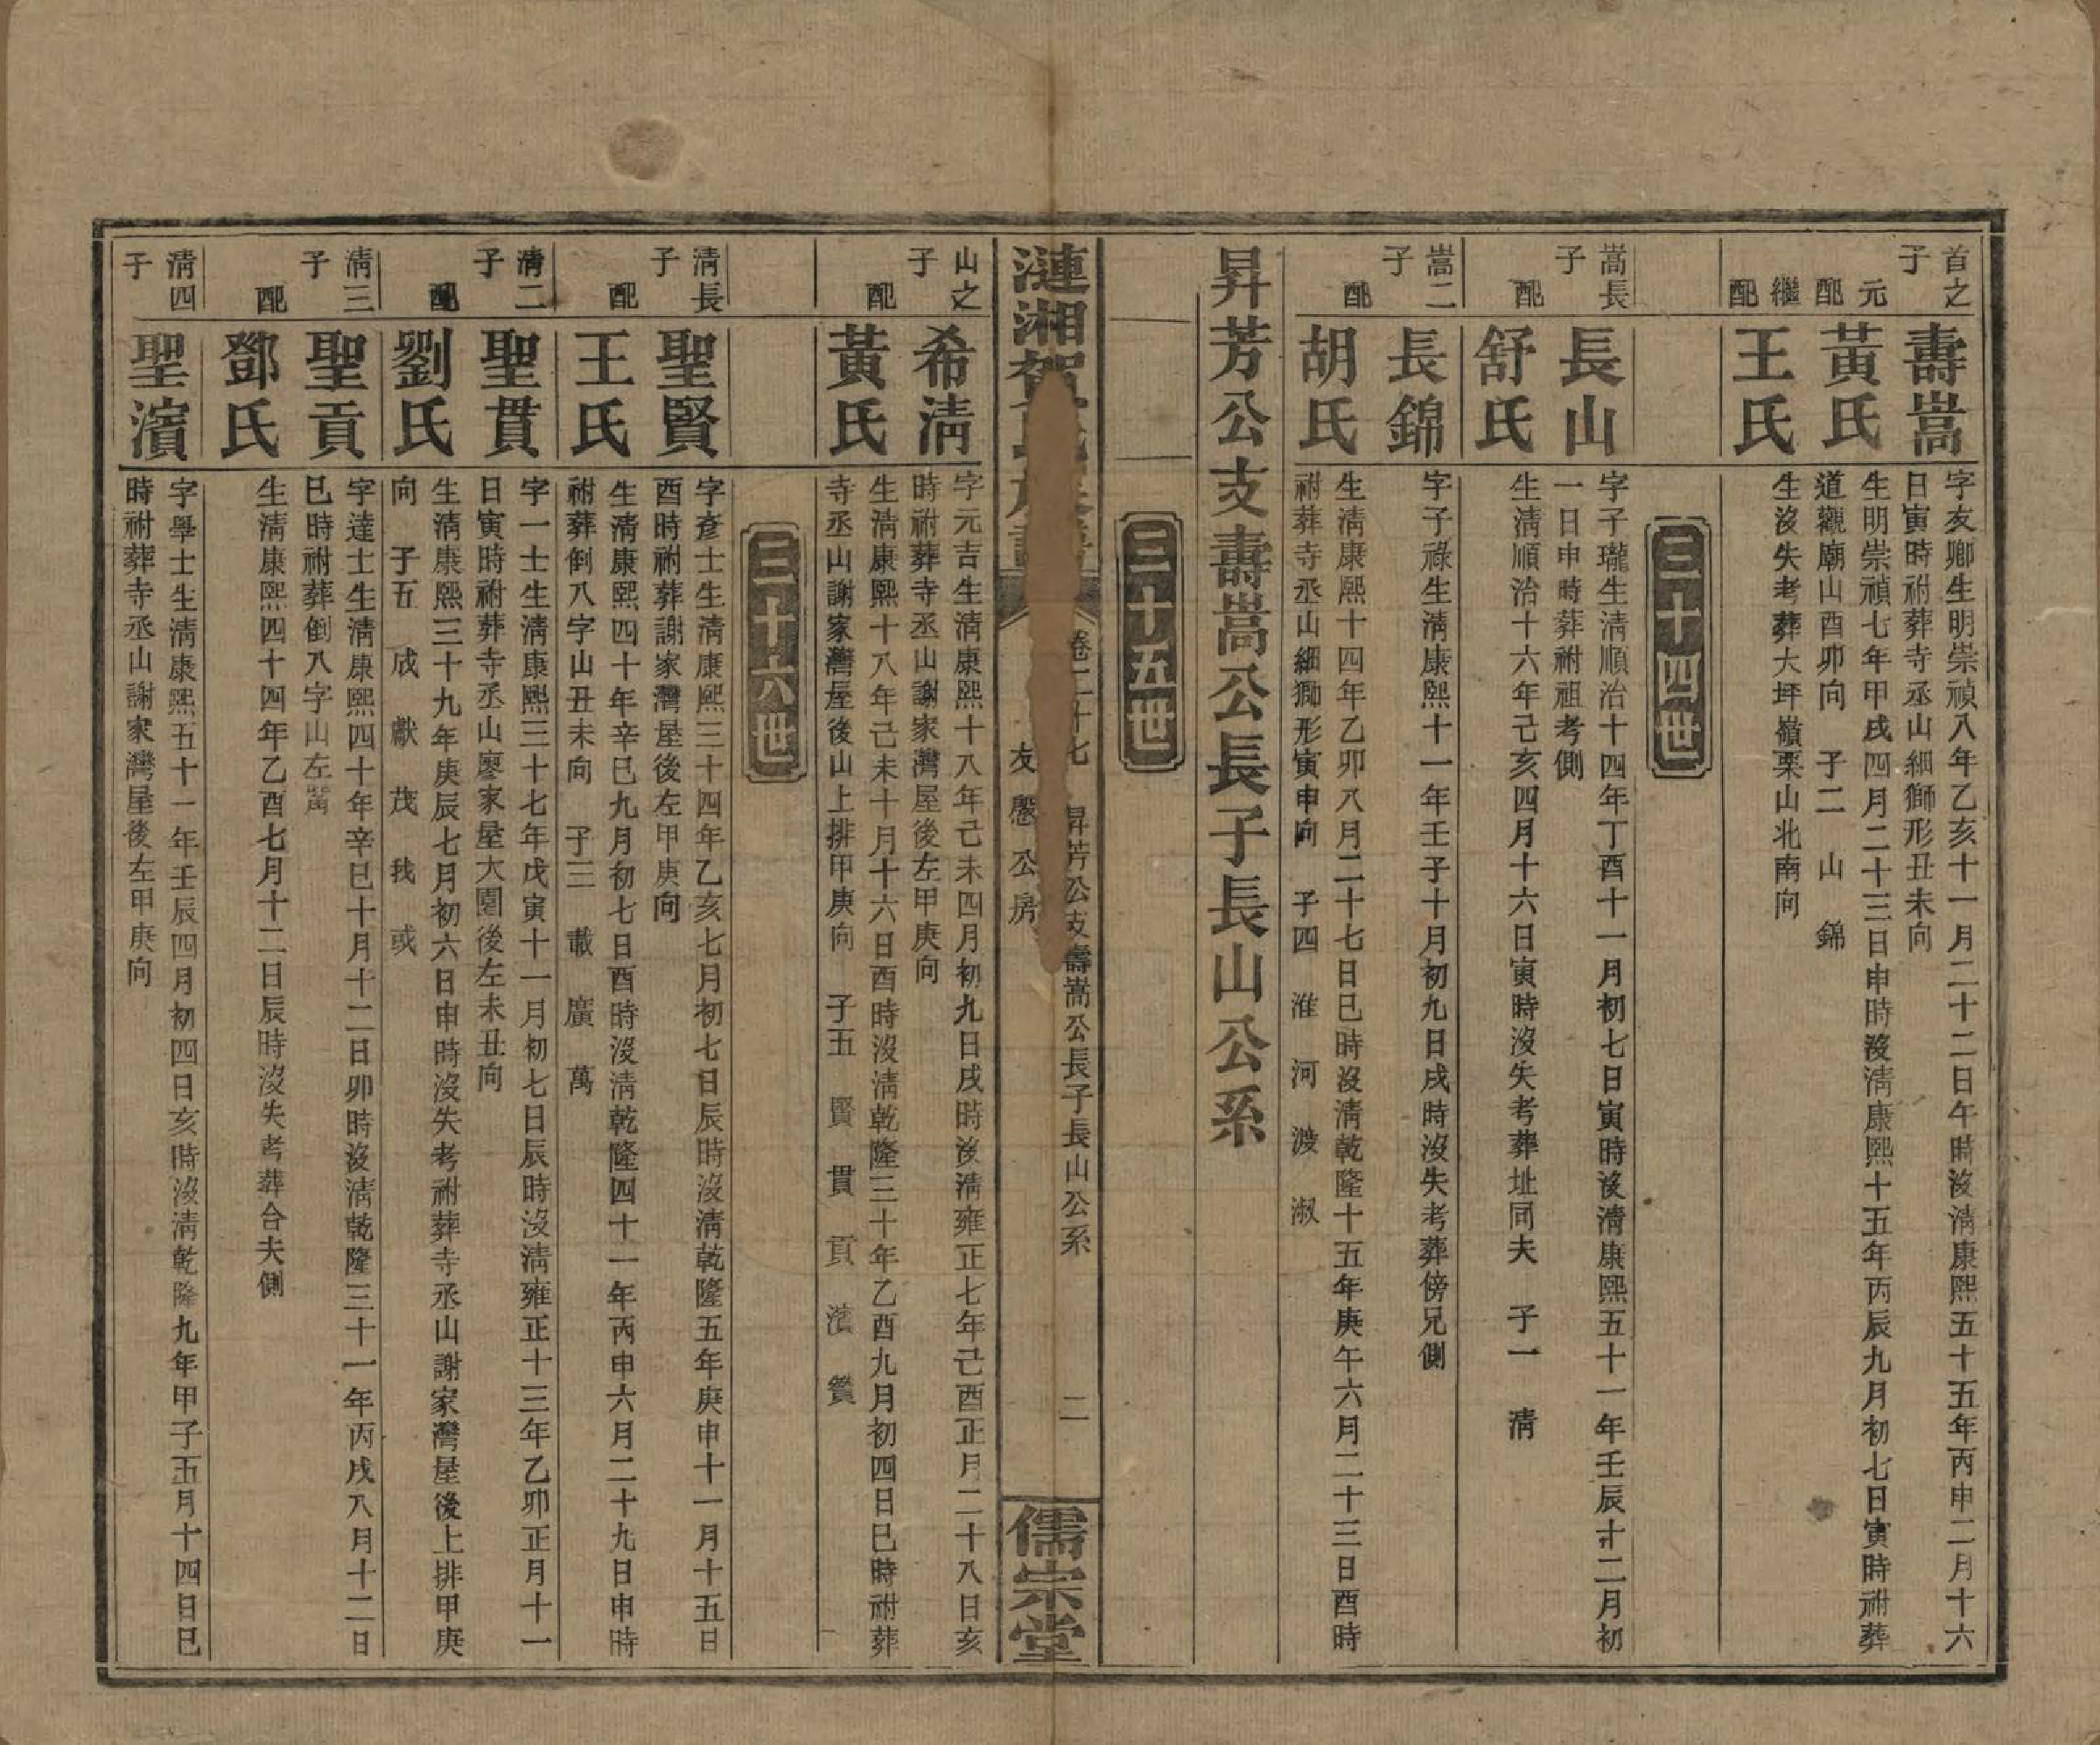 首之子
壽嵩
字友鄉生明崇禎八年乙亥十一月二十二日午時沒淸康熙五十五年丙申二月十六
日寅時祔葬寺丞山細獅形丑未向
元配
黃氏
生明崇禎七年甲戌四月二十三日申時沒淸康熙十五年丙辰九月初七日寅時祔葬
道觀廟山酉卯向 子二 山 錦
繼配
王氏
生沒失考葬大坪嶺栗山北南向
三十四世
嵩長子
長山
字子瓏生淸順治十四年丁酉十一月初七日寅時沒淸康熙五十一年壬辰十二月初
一日申時葬祔祖考側
配
舒氏
生淸順治十六年己亥四月十六日寅時沒失考葬址同夫 子一 淸
嵩二子
長錦
字子祿生淸康熙十一年壬子十月初九日戌時沒失考葬傍兄側
配
胡氏
生淸康熙十四年乙卯八月二十七日巳時沒淸乾隆十五年庚午六月二十三日酉時
祔葬寺丞山細獅形寅申向 子四 淮 河 渡 淑
昇芳公支壽嵩公長子長山公系
三十五世
漣湘賀氏族譜
卷二十七 昇芳公支壽嵩公長子長山公系
友愍公房
二
儒宗堂
山之子
希淸
字元吉生淸康熙十八年己未四月初九日戌時沒淸雍正七年己酉正月二十八日亥
時祔葬寺丞山謝家灣屋後左甲庚向
配
黃氏
生淸康熙十八年己未十月十六日酉時沒淸乾隆三十年乙酉九月初四日巳時祔葬
寺丞山謝家灣屋後山上排甲庚向 子五 賢 貫 貢 濱 贊
三十六世
淸長子
聖賢
字彥士生淸康熙三十四年乙亥七月初七日辰時沒淸乾隆五年庚申十一月十五日
酉時祔葬謝家灣屋後左甲庚向
配
王氏
生淸康熙四十年辛巳九月初七日酉時沒淸乾隆四十一年丙申六月二十九日申時
祔葬倒八字山丑未向 子三 載 廣 萬
淸二子
聖貫
字一士生淸康熙三十七年戊寅十一月初七日辰時沒淸雍正十三年乙卯正月十一
日寅時祔葬寺丞山廖家屋大園後左未丑向
配
劉氏
生淸康熙三十九年庚辰七月初六日申時沒失考祔葬寺丞山謝家灣屋後上排甲庚
向 子五 成 獻 茂 我 或
淸三子
聖貢
字達士生淸康熙四十年辛巳十月十二日卯時沒淸乾隆三十一年丙戌八月十二日
巳時祔葬倒八字山左
配
鄧氏
生淸康熙四十四年乙酉七月十二日辰時沒失考葬合夫側
淸四子
聖濱
字學士生淸康熙五十一年壬辰四月初四日亥時沒淸乾隆九年甲子五月十四日巳
時祔葬寺丞山謝家灣屋後左甲庚向